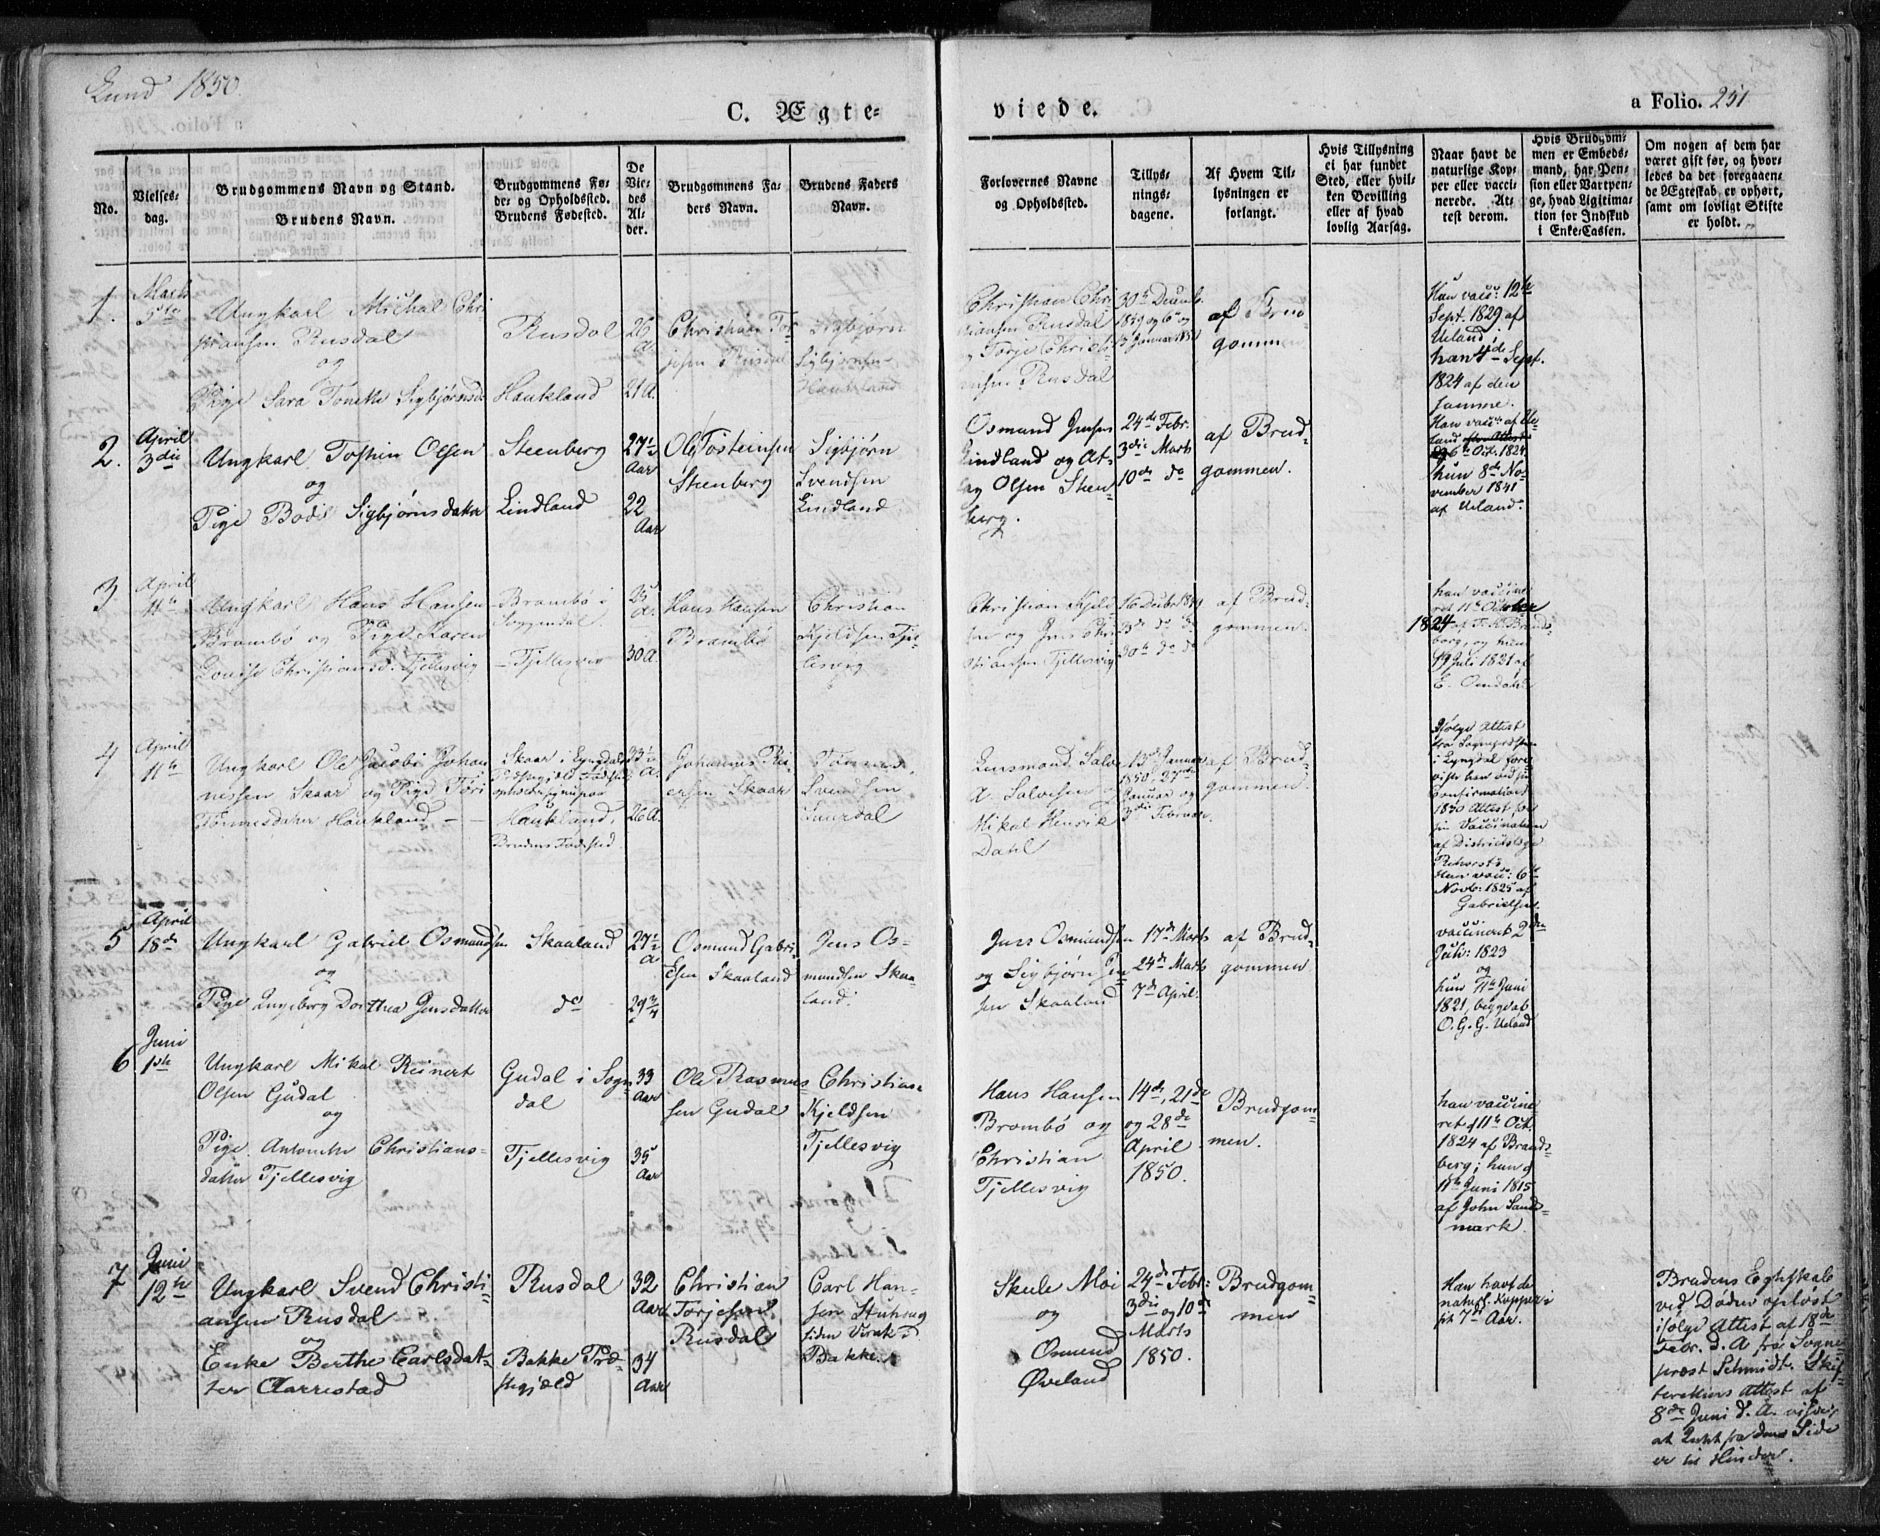 Lund 1850.
C. Ægte-
viede.
a Folio. 251
No.
Vielses-
dag.
Brudgommens Navn og Stand.
Brudens Navn.
Brudgommens Fø-
de- og Opholdssted.
Brudens Fødested.
De
Vie-
des
Al-
der.
Brudgommens Fa-
ders Navn.
Brudens Faders
Navn.
Forlovernes Navne
og Opholdssted.
Tillys-
nings-
dagene.
Af Hvem Til-
lysningen er
forlangt.
Hvis Tillysning
ei har fundet
Sted, eller hvil-
ken Bevilling
eller af hvad
lovlig Aarsag.
Naar havt de
naturlige Kop-
per eller vacci-
nerede. At-
test derom.
Hvis Brudgom-
men er Embeds-
mand, har Pen-
sion eller Vartpen-
ge, hvad Ligitima-
tion for Indskud
i Enke-Cassen.
Om nogen af dem har
været gift før, og hvor-
ledes da det foregaaen-
de Ægteskab er ophørt,
samt om lovligt Skifte
er holdt.
1.
Marts
5te
Ungkarl Michal Chri
stiansen Rusdal
og
Pige Sara Tonette Sigbjørnsd.
Rusdal
Haukland
26
A.
21 A.
Christian Tor
jesen Rusdal
Sigbjørn
Haukland
Christian Chri
stiansen Rusdal
og Torje Christi
ansen Rusdal
30te Decemb.
1849 og 6te og
13 Januar 1850
af Brud
gommen
Han vacc: 12te
Sept. 1829 af
Ueland
hun 4de Sept.
1824 af den
samme.
2.
April
3die
Ungkarl Tostein Olsen
og
Pige Bodil Sigbjørnsdatter
Steenberg
Lindland
27½
Aar
22
Aar
Ole Tosteinsen
Steenberg
Sigbjørn
Svendsen
Lindland
Osmund Jensen
Lindland og At-
lag Olsen Steen-
berg.
24de Febr.
3die Marts
10de do
af Brud-
gommen.
Han vacc: af Ue-
land
6te Oct. 1824
hun 8de No-
vember 1841
af Ueland.
3
April
4te
Ungkarl Hans Hansen
Brambø og Pige Karen
Lovise Christiansd. Tjellesvig
Brambø i
Soggendal.
Tjellesvig
25
A.
30 A.
Hans Hansen
Brambø
Christian
Kjeldsen Tjel-
lesvig
Christian Kjeld
sen og Jens Chri-
stiansen Tjellesvig
16 Decbr 1849
23de do do
30te do do
af Brud-
gommen.
han vaccine
ret 11te October
1824 af Brands-
berg, og hun
19 Juli 1821 af
E. Omdal
4
April
11te
Ungkarl Ole Jacobi Johan
nessen Skaar og Pige Tori
Tønnesdatter Haukland
Skaar i Lyngdals
Haukland,
Brudens Fødested
33½
A.
26 A.
Johannes Rei-
ersen Skaar
Tønnes
Svendsen
Salve
A. Salvesen og
Mikal Henrik
Dahl
13de Januar
1850, 27de
Januar og
3die Februar.
af Brud-
gommen.
Ifølge Attest
fra Sognepræsten
i Lyngdal fore
viste han ved sin
Confirmation
1830 Attest for
sin Vaccination
af Districtslæge
Hun vacc: 6te
Novb: 1825 af
Gabrielsen.
5
April
18de
Ungkarl Gabriel Osmundsen
og
Pige Ingeborg Dorthea Jensdatter
Skaaland
do
27½
A
29¾
Osmund Gabri
elsen Skaaland
Jens Os-
mundsen Skaa-
land.
Jens Osmundsen
og Sigbjørn Jen
sen Skaaland
17de Marts
24de Marts
7de April.
af Brud-
gommen
vaccineret 2den
Juli: 1823
og
hun 11te Juni
1821, begge af
O. G. G. Ueland
6
Juni
1ste
Ungkarl Mikal Reinert
Olsen Gudal
og
Pige Antonette Christians-
datter Tjellesvig
Gudal i Sogn
dal
Tjellesvig
33
Aar
35
Aar
Ole Rasmus-
sen Gudal
Christian
Kjeldsen
Tjellesvig
Hans Hansen
Brombø og
Christian
Tjellesvig
14de, 21de
og 28de
April
1850.
Brudgom-
men.
han vaccine
ret d 11te Oct.
1824 af Brands-
berg; hun d
11te Juni 1815
af John Sands-
mark.
7
Juni
12te
Ungkarl Svend Christi-
ansen Rusdal
og
Enke Berthe Carlsdat-
ter Aarrestad
Rusdal
Bakke Præ-
stegjæld
32
Aar
34
Aar
Christian
Torjesen
Rusdal
Carl Han-
sen
Bakke.
Skule Moi
og
Osmund
Øveland
24de Febr:
3die og 10de
Marts
1850.
Brudgom-
men
Han havt de
naturl. Kopper i
sit 7de Aar.
Brudens Egteskab
ved Døden opløst
ifølge Attest af 18de
Febr. d. A fra Sogne-
præst Schmidt. Skif-
terettens Attest af
8de Juni d. A. viser,
at Intet fra dens Side
er til Hinder.